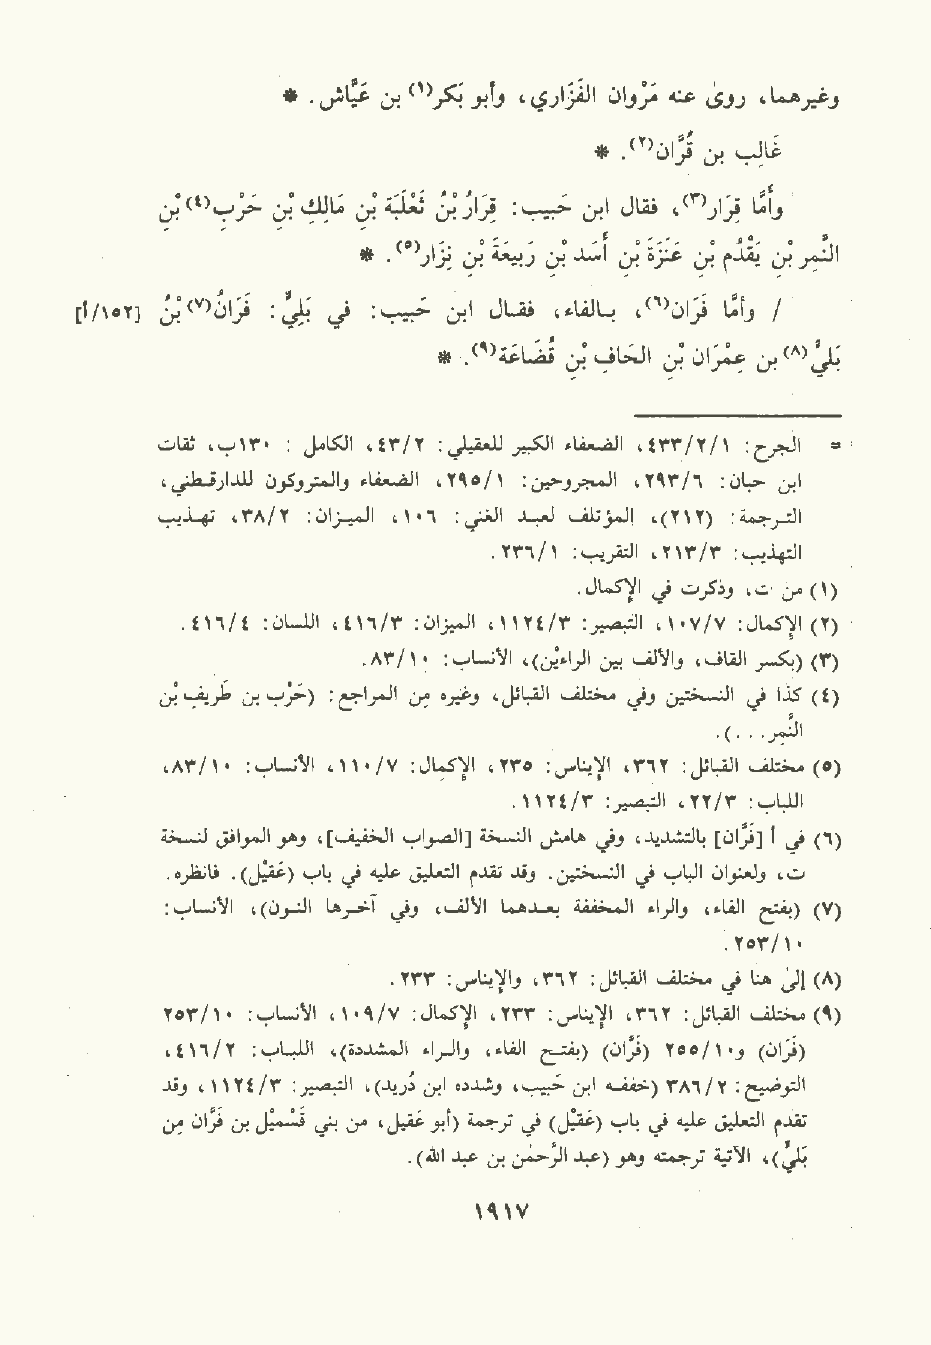 وغيرهما، روىٰ عنه مَرْوان الفَزَاري، وأبو بَكر(١) بن عَيَّاش. *
غَالِب بن قُرَّان(٢). *
وأَمَّا قِرَار(٣)، فقال ابن حَبيب: قِرَارُ بْنُ ثَعْلَبَةَ بْنِ مَالِكِ بْنِ حَرْبِ(٤) بْنِ
النَّمِرِ بْنِ يَقْدُمِ بْنِ عَنَزَةَ بْنِ أَسَدِ بْنِ رَبيعَةَ بْنِ نِزَار(٥). *
/ وأمَّا فَرَان(٦)، بـالفاء، فقـال ابن حَبيب: في بَلِيٍّ: فَرَانُ(٧) بْنُ [١٥٢/أ]
بَلِيِّ(٨) بن عِمْرَانِ بْنِ الحَافِ بْنِ قُضَاعَة(٩). *
= الجرح: ٤٣٣/٢/١، الضعفاء الكبير للعقيلي: ٤٣/٢، الكامل: ١٣٠ب، ثقات
ابن حبان: ٢٩٣/٦، المجروحين: ٢٩٥/١، الضعفاء والمتروكون للدارقـطني،
التـرجمة: (٢١٢)، المؤتلف لعبـد الغني: ١٠٦، الميـزان: ٣٨/٢، تهـذيب
التهذيب: ٢١٣/٣، التقريب: ٢٣٦/١.
(١) من ت، وذكرت في الإكمال.
(٢) الإكمال: ١٠٧/٧، التبصير: ١١٢٤/٣، الميزان: ٤١٦/٣، اللسان: ٤١٦/٤.
(٣) (بكسر القاف، والألف بين الراءيْن)، الأنساب: ٨٣/١٠.
(٤) كذا في النسختين وفي مختلف القبائل، وغيره مِن المراجع: (حَرْب بن طَريفِ بْنِ
النَّمِر. . .).
(٥) مختلف القبائل: ٣٦٢، الإيناس: ٢٣٥، الإكمال: ١١٠/٧، الأنساب: ٨٣/١٠،
اللباب: ٢٢/٣، التبصير: ١١٢٤/٣.
(٦) في أ [فَرَّان] بالتشديد، وفي هامش النسخة [الصواب الخفيف]، وهو الموافق لنسخة
ت، ولعنوان الباب في النسختين. وقد تقدم التعليق عليه في باب (عَقيْل). فانظره.
(٧) (بفتح الفاء، والراء المخففة بعـدهما الألف، وفي آخـرها النـون)، الأنساب:
٢٥٣/١٠.
(٨) إلىٰ هنا في مختلف القبائل: ٣٦٢، والإيناس: ٢٣٣.
(٩) مختلف القبائل: ٣٦٢، الإيناس: ٢٣٣، الإكمال: ١٠٩/٧، الأنساب: ٢٥٣/١٠
(فَرَان) و٢٥٥/١٠ (فَرَّان) (بفتـح الفاء، والـراء المشددة)، اللبـاب: ٤١٦/٢،
التوضيح: ٣٨٦/٢ (خففه ابن حَبيب، وشدده ابن دُريد)، التبصير: ١١٢٤/٣، وقد
تقدم التعليق عليه في باب (عَقيْل) في ترجمة (أبو عَقيل، من بني قَسْمِيْل بن فَرَّان مِن
بَلِيٍّ)، الآتية ترجمته وهو (عبد الرَّحمٰن بن عبد الله).
١٩١٧